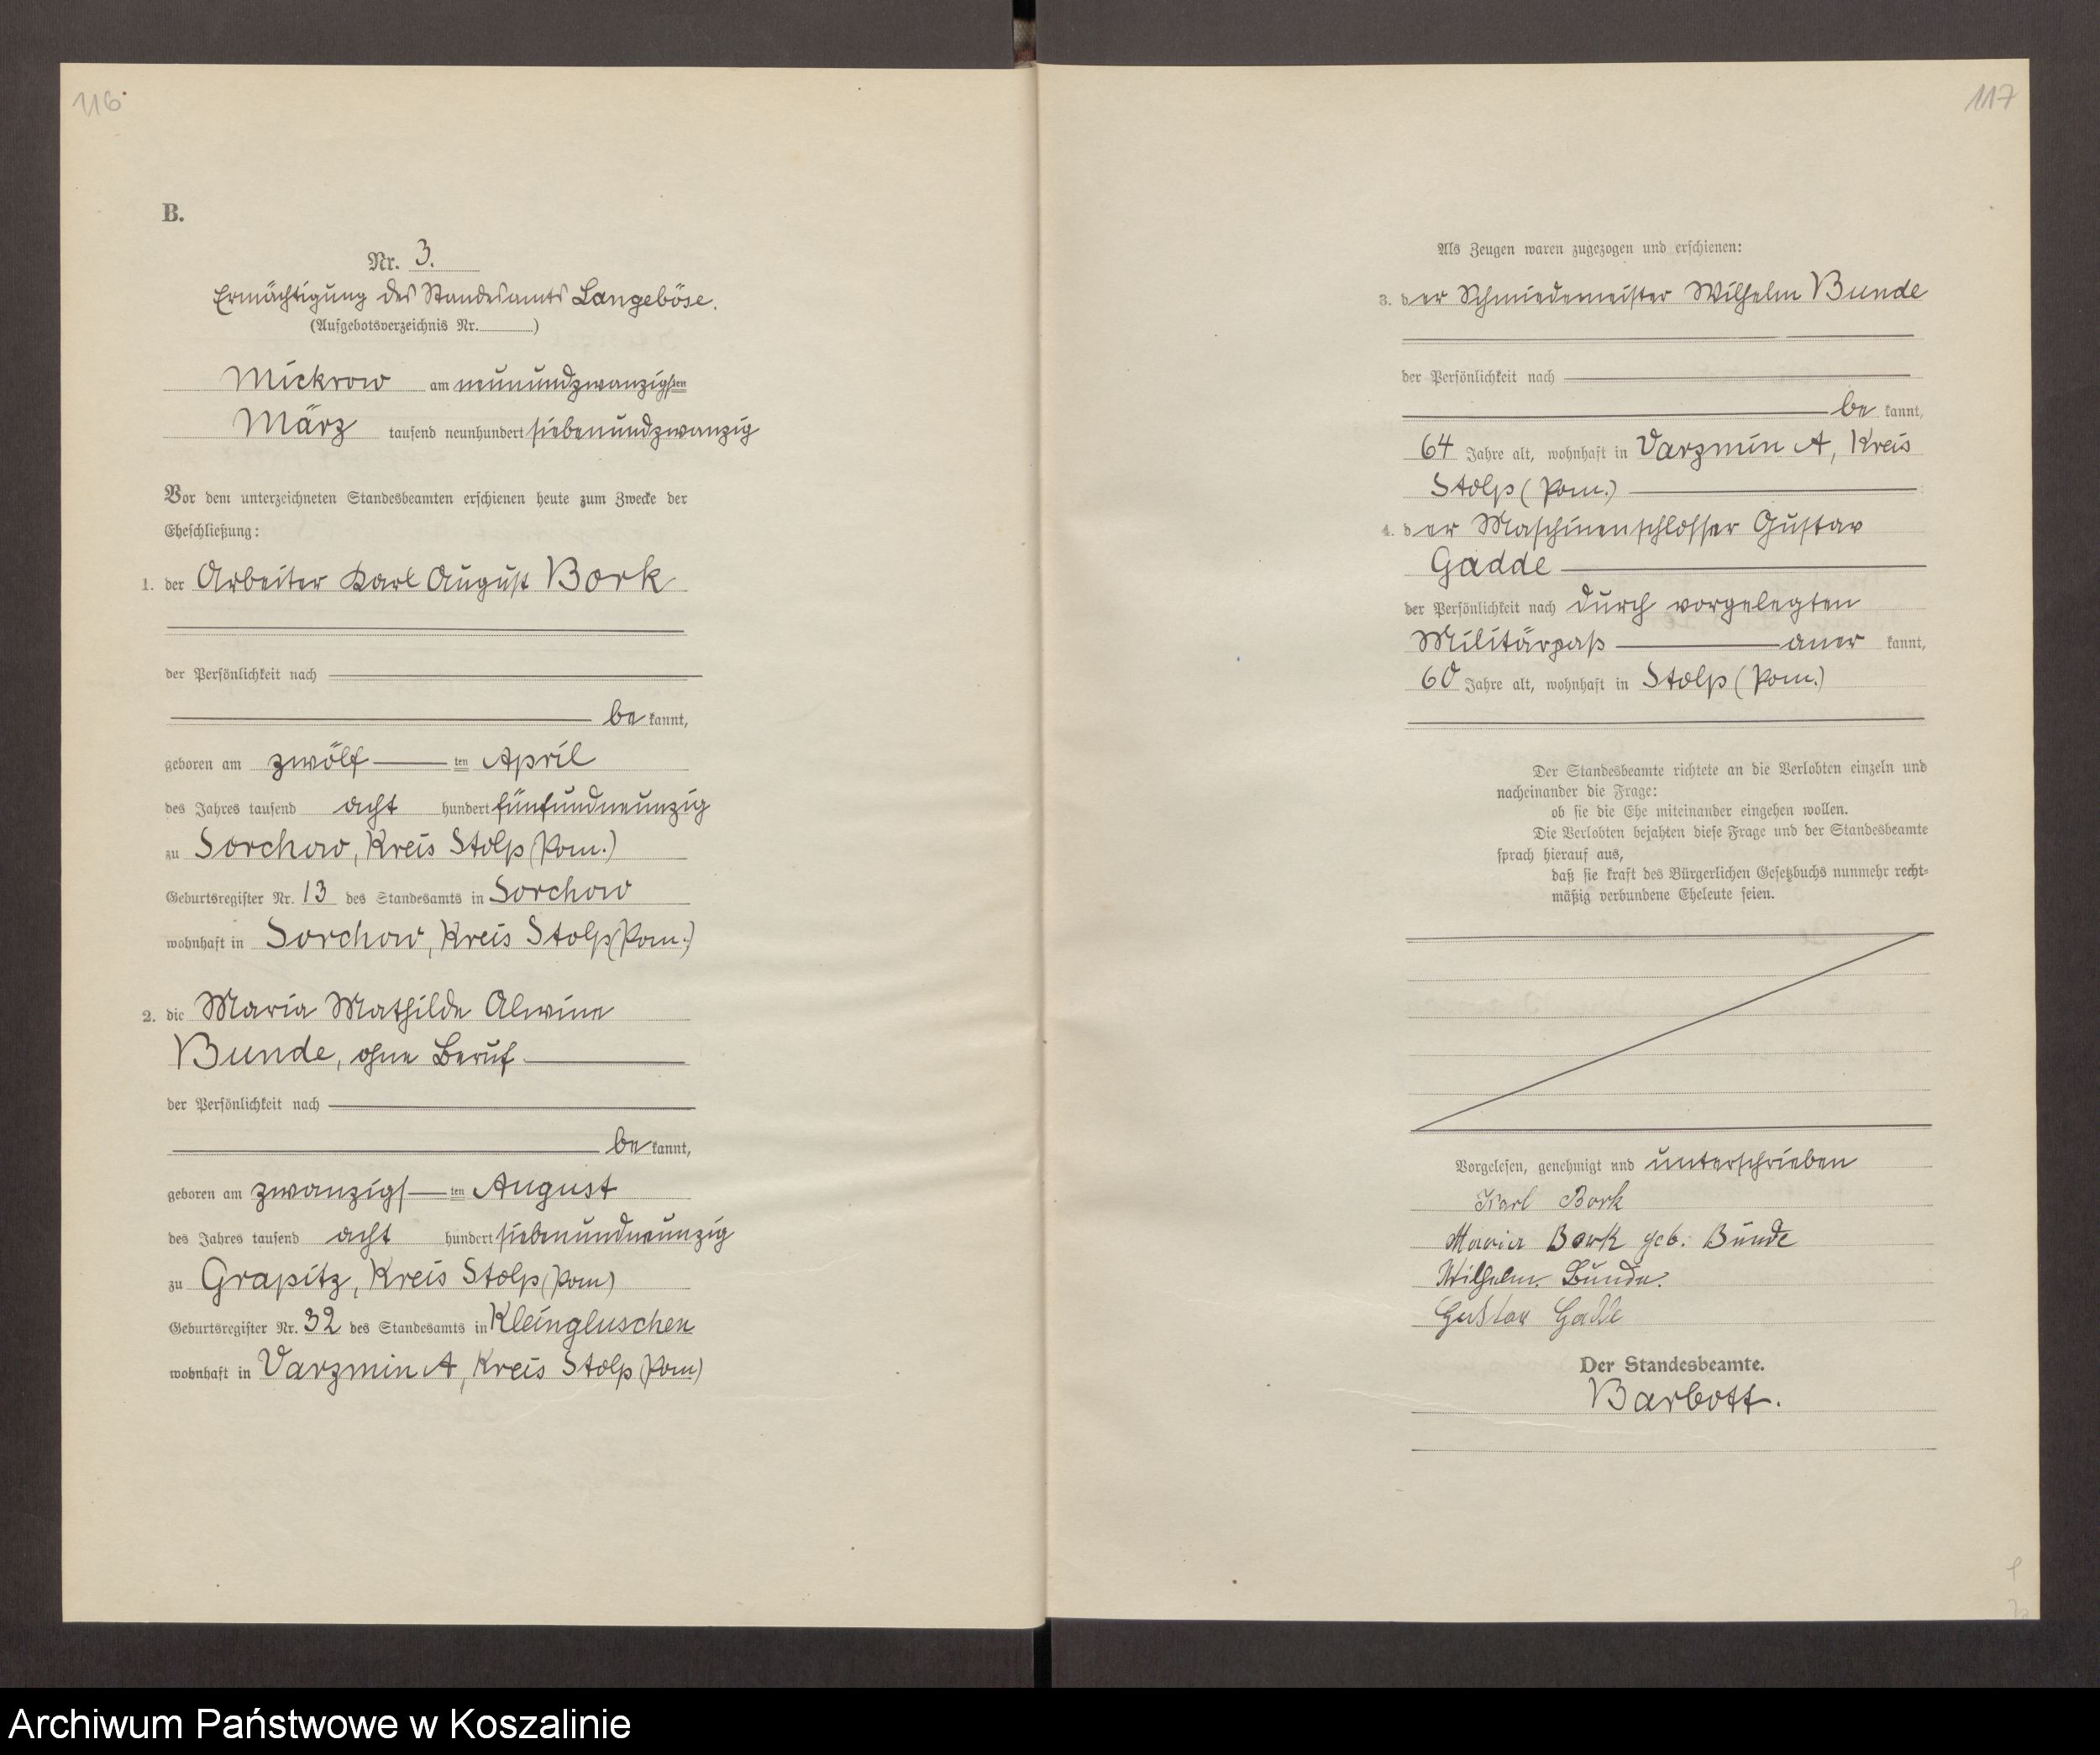 116.
B.
Nr. 3.
Ermächtigung des Standesamts Langeböse.
(Aufgebotsverzeichnis Nr. )
Mickrow am neunundzwanzigsten
März tausend neunhundert siebenundzwanzig
Vor dem unterzeichneten Standesbeamten erschienen heute zum Zwecke der
Eheschließung:
1. der Arbeiter Karl August Bork
der Persönlichkeit nach
be kannt,
geboren am zwölf ten April
des Jahres tausend acht hundert fünfundneunzig
zu Sorchow, Kreis Stolp (Pom.)
Geburtsregister Nr. 13 des Standesamts in Sorchow
wohnhaft in Sorchow, Kreis Stolp (Pom.)
2. die Maria Mathilde Alwine
Bunde, ohne Beruf
der Persönlichkeit nach
be kannt,
geboren am zwanzigs ten August
des Jahres tausend acht hundert siebenundneunzig
zu Grapitz, Kreis Stolp (Pom)
Geburtsregister Nr. 32 des Standesamts in Kleingluschen
wohnhaft in Varzmin A, Kreis Stolp (Pom)
117
Als Zeugen waren zugezogen und erschienen:
3. der Schmiedemeister Wilhelm Bunde
der Persönlichkeit nach
be kannt,
64 Jahre alt, wohnhaft in Varzmin A, Kreis
Stolp (Pom.)
4. der Maschinenschlosser Gustav
Gadde
der Persönlichkeit nach durch vorgelegten
Militärpaß aner kannt,
60 Jahre alt, wohnhaft in Stolp (Pom.)
Der Standesbeamte richtete an die Verlobten einzeln und
nacheinander die Frage:
ob sie die Ehe miteinander eingehen wollen.
Die Verlobten bejahten diese Frage und der Standesbeamte
sprach hierauf aus,
daß sie kraft des Bürgerlichen Gesetzbuchs nunmehr recht-
mäßig verbundene Eheleute seien.
Vorgelesen, genehmigt und unterschrieben
Karl Bork
Maria Bork geb. Bunde
Wilhelm Bunde.
Gustav Gadde
Der Standesbeamte.
Barbott.
Archiwum Państwowe w Koszalinie